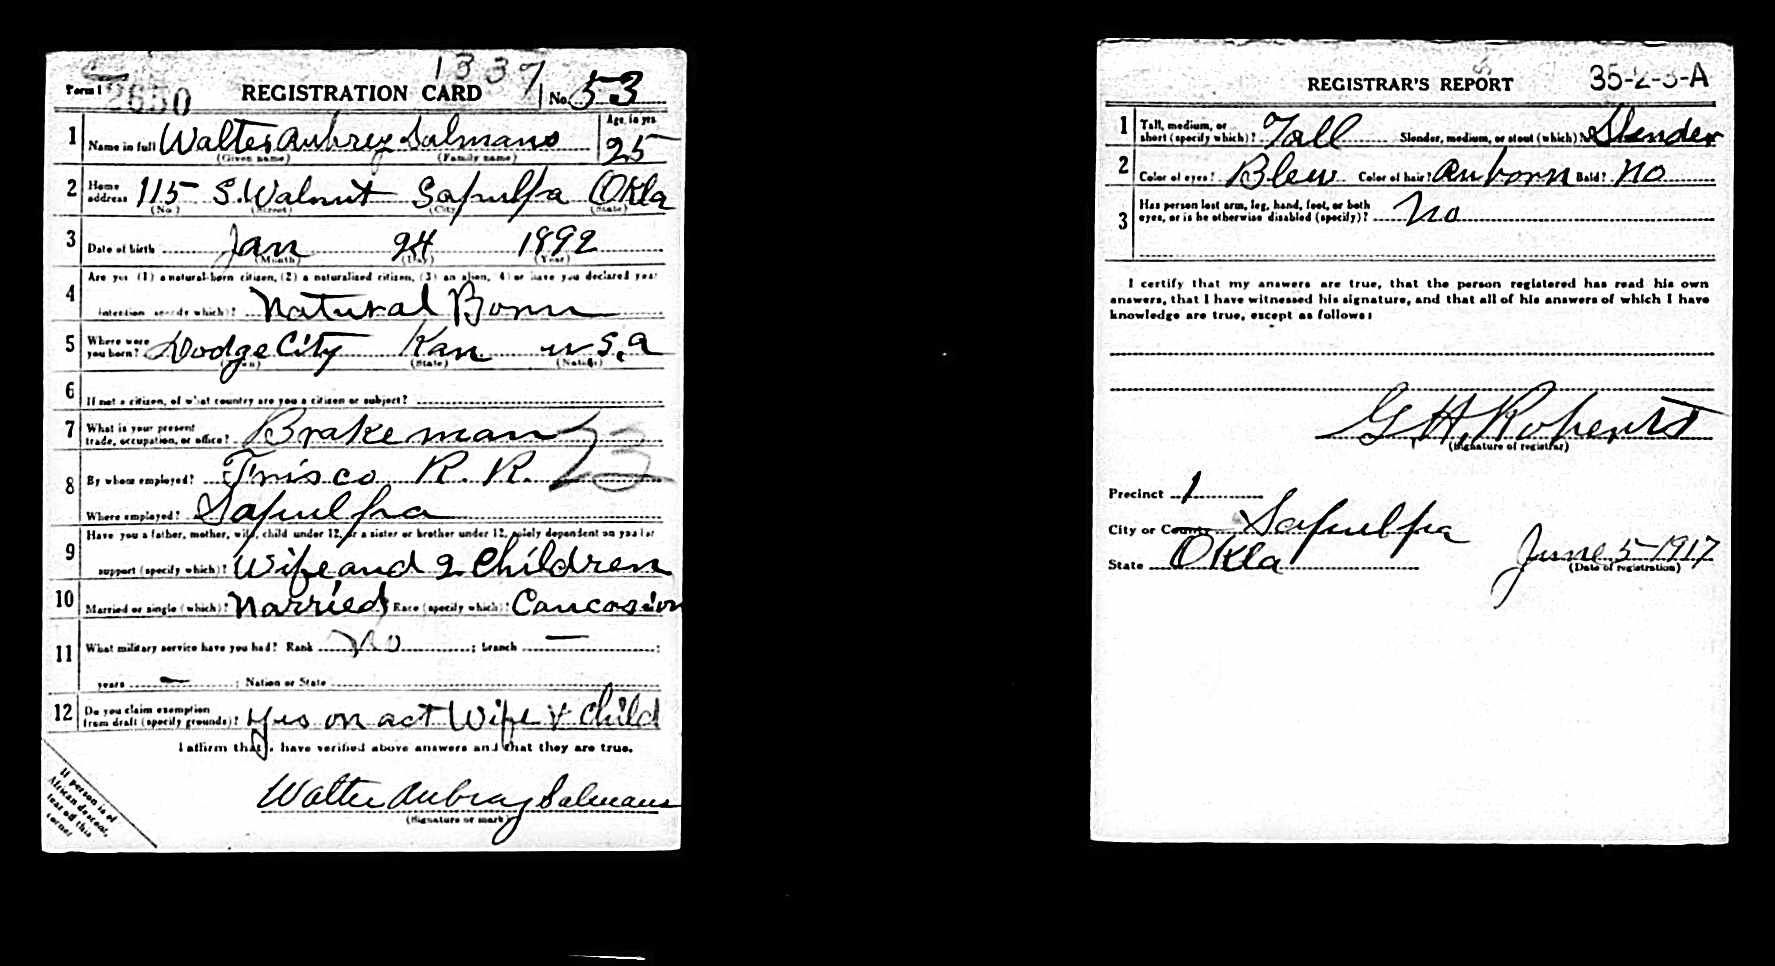 1337
Form 1 2630 REGISTRATION CARD No. 53
1 Name in full Walter Aubrey Salmans Age, in yrs. 25
(Given name) (Family name)
2 Home address 115 S. Walnut Sapulpa Okla
(No.) (Street) (City) (State)
3 Date of birth Jan 24 1892
(Month) (Day) (Year)
4 Are you (1) a natural-born citizen, (2) a naturalized citizen, (3) an alien, (4) or have you declared your
intention (specify which)? Natural Born
5 Where were you born? Dodge City Kan U.S.A
(Town) (State) (Nation)
6 If not a citizen, of what country are you a citizen or subject?
7 What is your present trade, occupation, or office? Brakeman 23
8 By whom employed? Frisco R. R.
Where employed? Sapulpa
9 Have you a father, mother, wife, child under 12, or a sister or brother under 12, solely dependent on you for
support (specify which)? Wife and 2 Children
10 Married or single (which)? Married Race (specify which)? Caucasion
11 What military service have you had? Rank No ; branch — ;
years — ; Nation or State
12 Do you claim exemption from draft (specify grounds)? Yes on act Wife & Child
I affirm that I have verified above answers and that they are true.
Walter Aubray Salmans
(Signature or mark)
If person is of
African descent,
tear off this
corner
REGISTRAR'S REPORT 35-2-3-A
1 Tall, medium, or short (specify which)? Tall Slender, medium, or stout (which)? Slender
2 Color of eyes? Blew Color of hair? Auborn Bald? No
3 Has person lost arm, leg, hand, foot, or both
eyes, or is he otherwise disabled (specify)? No
I certify that my answers are true, that the person registered has read his own
answers, that I have witnessed his signature, and that all of his answers of which I have
knowledge are true, except as follows:
G. H. Roberts
(Signature of registrar)
Precinct 1
City or County Sapulpa
State Okla June 5-1917
(Date of registration)